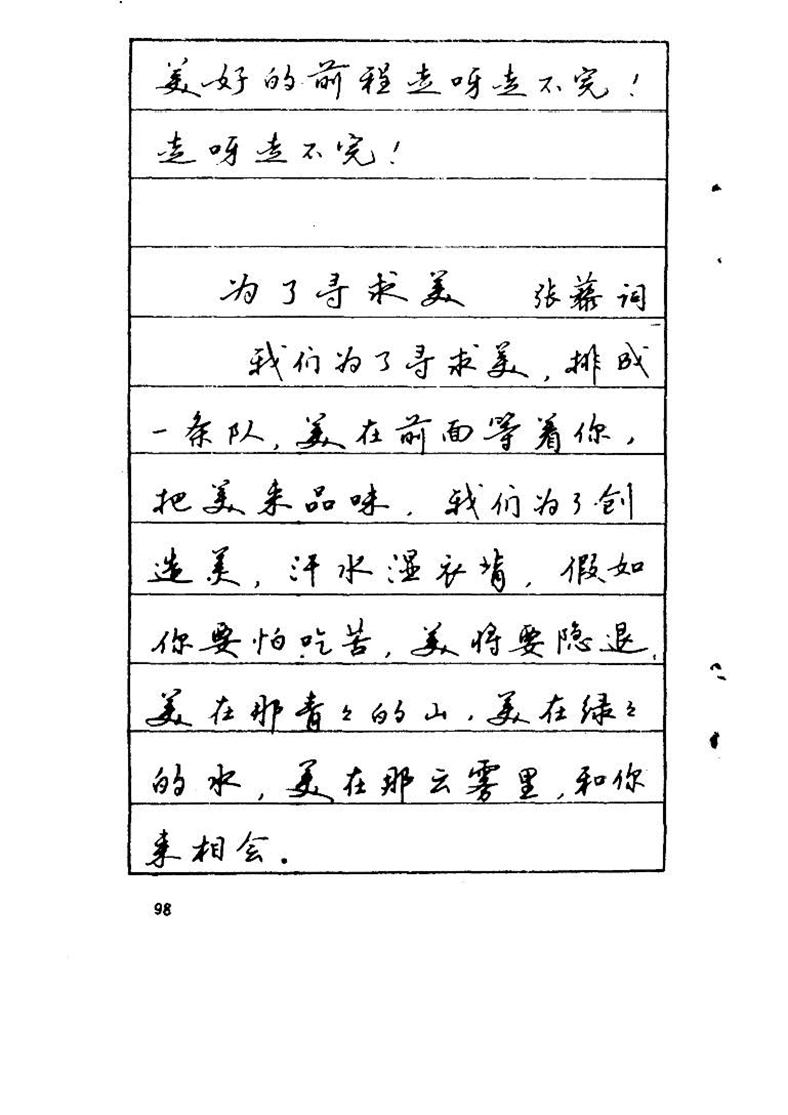 美好的前程走呀走不完！
走呀走不完！
为了寻求美 张藜词
我们为了寻求美，排成
一条队，美在前面等着你，
把美来品味．我们为了创
造美，汗水湿衣背，假如
你要怕吃苦，美将要隐退．
美在那青々的山．美在绿々
的水，美在那云雾里，和你
来相会．
98